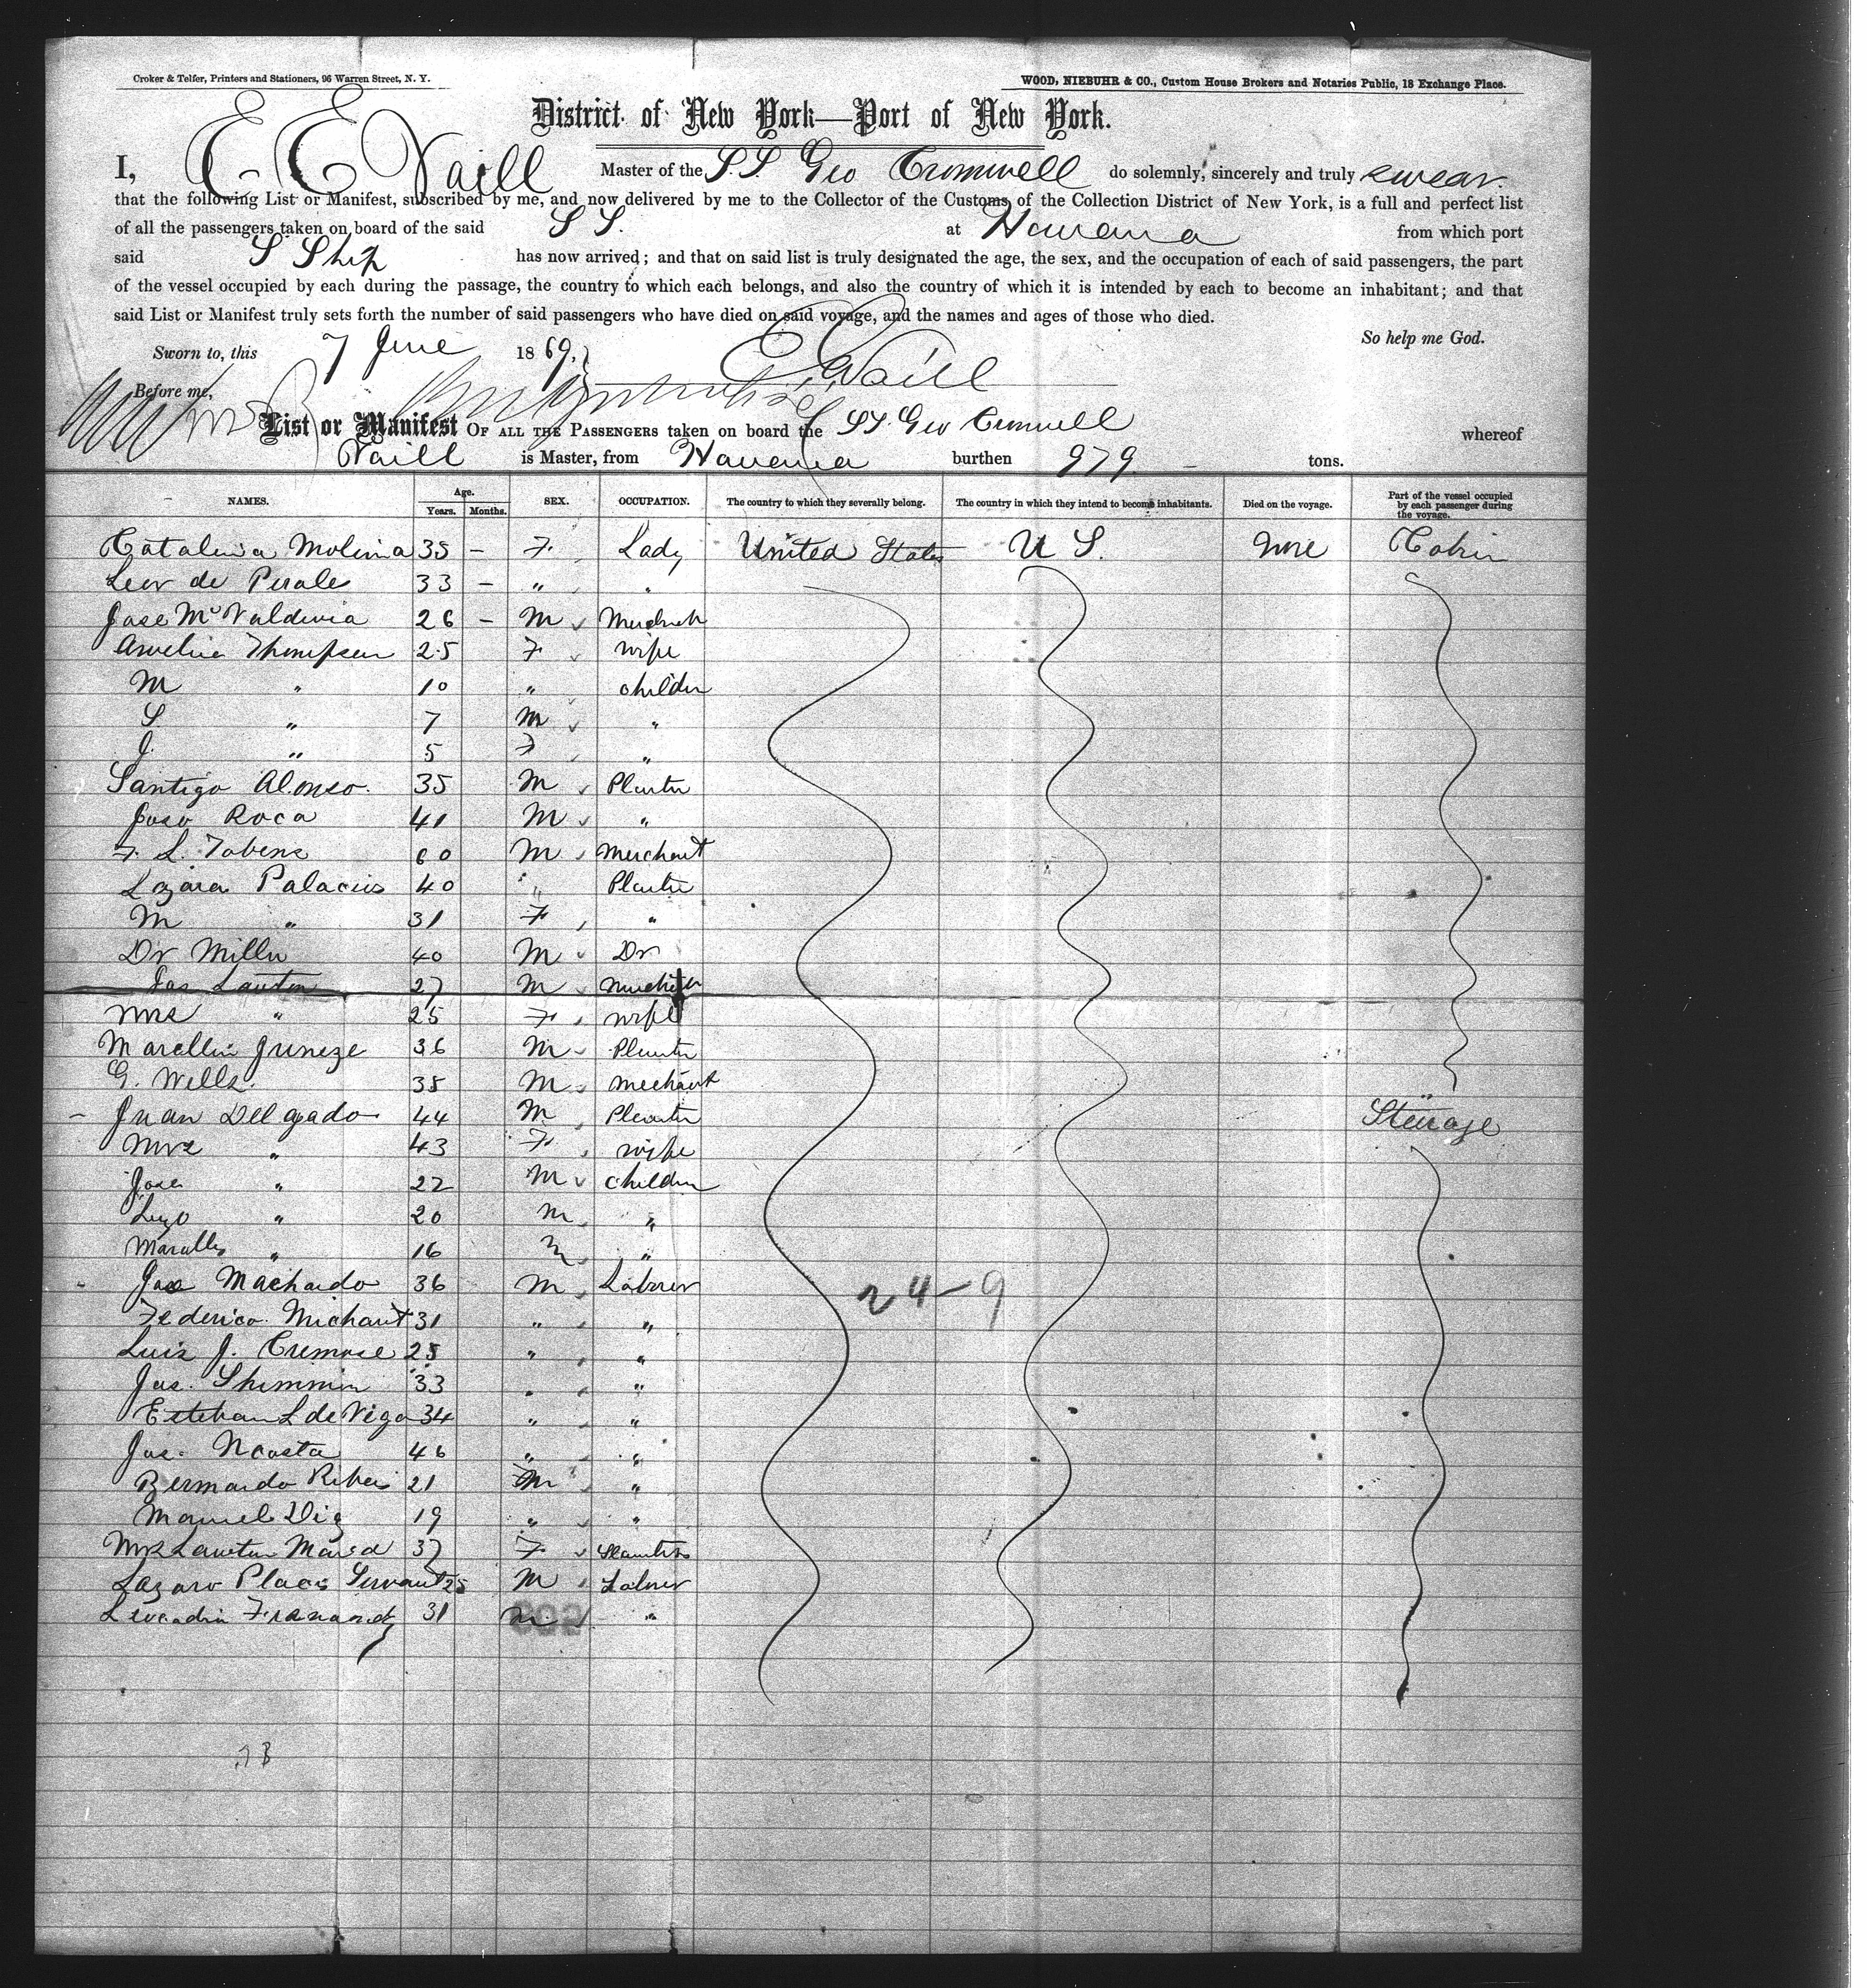 Croker & Telfer, Printers and Stationers, 96 Warren Street, N. Y.
WOOD, NIEBUHR & CO., Custom House Brokers and Notaries Public, 18 Exchange Place.
District of New York—Port of New York.
I, E E Vaill Master of the S.S Geo Cromwell do solemnly, sincerely and truly swear
that the following List or Manifest, subscribed by me, and now delivered by me to the Collector of the Customs of the Collection District of New York, is a full and perfect list
of all the passengers taken on board of the said S S. at Havana from which port
said S Ship has now arrived; and that on said list is truly designated the age, the sex, and the occupation of each of said passengers, the part
of the vessel occupied by each during the passage, the country to which each belongs, and also the country of which it is intended by each to become an inhabitant; and that
said List or Manifest truly sets forth the number of said passengers who have died on said voyage, and the names and ages of those who died.
So help me God.
Sworn to, this 7 June 1869, E E Vaill
Before me,
List or Manifest OF ALL THE PASSENGERS taken on board the SS. Geo Cromwell whereof
Vaill is Master, from Havana burthen 979 tons.
NAMES. Age. Years. Months. SEX. OCCUPATION. The country to which they severally belong. The country in which they intend to become inhabitants. Died on the voyage. Part of the vessel occupied by each passenger during the voyage.
Catalina Molina 35 – F Lady United States U S. None Cabin
Leor de Perale 33 – " "
Jose Ma Valdivia 26 – M
Amelia Thompson 25 F wife
M " 10 " children
S " 7 M "
J. " 5 F "
Santigo Alonso 35 M Planter
Jose Roca 41 M "
F. L. Tobens 60 M Merchant
Lazara Palacius 40 " Planter
M " 31 F "
Dr Miller 40 M Dr
Jas Lawton 27 M
Mrs " 25 F wife
Marellin 36 M Planter
G. Wells. 35 M Mechant
Juan Delgado 44 M Planter Steerage
Mrs " 43 F wife
Jose " 22 M children
" 20 M "
" 16 M "
Jose Machado 36 M Laborer
Federico Michaut 31 " "
Luis J. 25 " "
Jas. Shimmin 33 " "
Esteban L de Vega 34 " "
Jos. Ncosta 46 " "
Bernardo 21 M "
Manuel 19 " "
Mrs Lawton Maid 37 F
Lazaro Placis Servant 25 M Laborer
31 M "
24-9